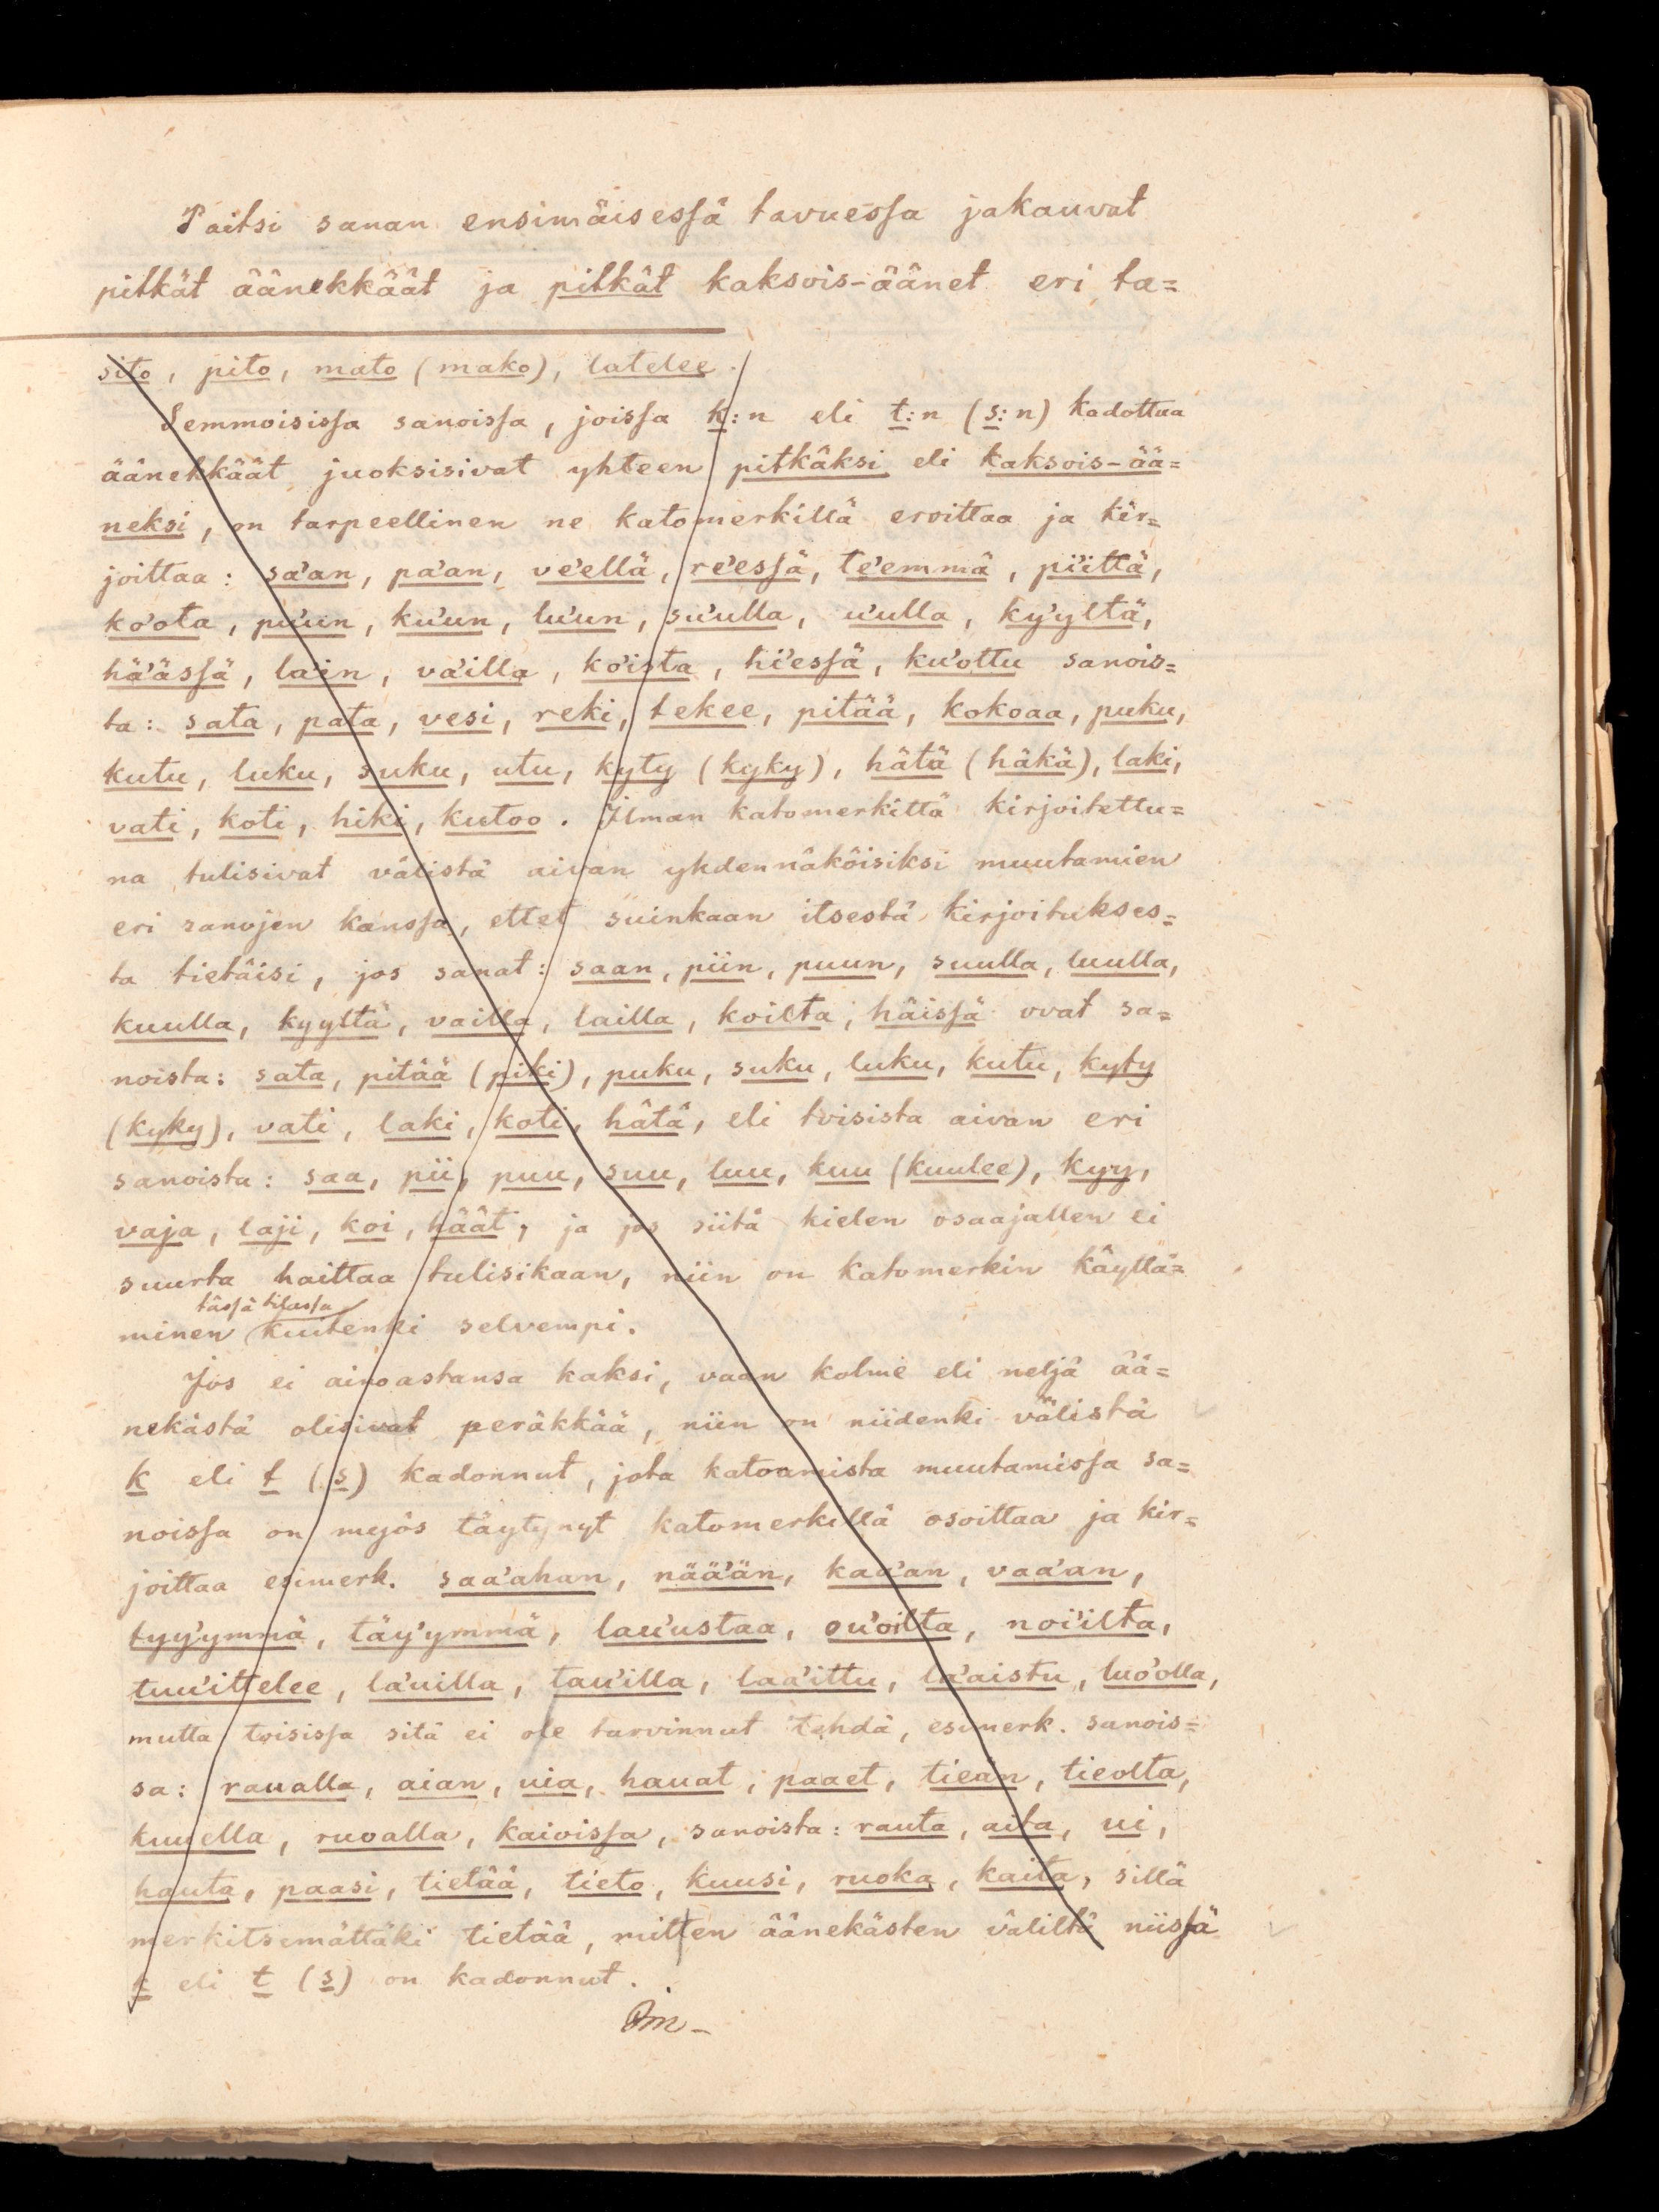 Paitsi sanan ensimäisessä tavuessa jakauvat
pitkät äänekkäät ja pitkät kaksois-äänet eri ta=
sito, pito, mato (mako), latelee.
Semmoisissa sanoissa, joissa k:n eli t:n (s:n) kadottua
äänekkäät juoksisivat yhteen pitkäksi eli kaksois-ää=
neksi, on tarpeellinen ne katomerkillä eroittaa ja kir=
joittaa: sa'an, pa'an, ve'ellä, re'essä, te'emmä, pi'ittä,
ko'ota, pu'un, ku'un, lu'un, su'ulla, u'ulla, ky'yltä,
hä'ässä, la'in, va'illa, ko'ista, hi'essä, ku'ottu sanois=
ta: sata, pata, vesi, reki, tekee, pitää, kokoaa, puku,
kutu, luku, suku, utu, kyty (kyky), hätä (häkä), laki,
vati, koti, hiki, kutoo. Ilman katomerkittä kirjoitettu=
na tulisivat välistä aivan yhdennäköisiksi muutamien
eri sanojen kanssa, ettet suinkaan itsestä kirjoitukses=
ta tietäisi, jos sanat: saan, piin, puun, suulla, luulla,
kuulla, kyyltä, vailla, lailla, koilta, häissä ovat sa=
noista: sata, pitää (piki), puku, suku, luku, kutu, kyty
(kyky), vati, laki, koti, hätä, eli toisista aivan eri
sanoista: saa, pii, puu, suu, luu, kuu (kuulee), kyy,
vaja, laji, koi, häät; ja jos siitä kielen osaajallen ei
suurta haittaa tulisikaan, niin on katomerkin käyttä=
tässä tilassa
minen kuitenki selvempi.
Jos ei ainoastansa kaksi, vaan kolme eli neljä ää=
nekästä olisivat peräkkää, niin on niidenki välistä
k eli t (s) kadonnut, jota katoamista muutamissa sa=
noissa on myös täytynyt katomerkillä osoittaa ja kir=
joittaa esimerk. saa'ahan, nää'än, kaa'an, vaa'an,
tyy'ymmä, täy'ymmä, lau'ustaa, ou'oilta, noi'ilta,
tuu'ittelee, la'uilla, tau'illa, laa'ittu, la'aistu, luo'olla,
mutta toisissa sitä ei ole tarvinnut tehdä, esimerk. sanois=
sa: raualla, aian, uia, hauat, paaet, tieän, tieolta,
kuuella, ruoalla, kaioissa, sanoista: rauta, aita, ui,
hauta, paasi, tietää, tieto, kuusi, ruoka, kaita, sillä
merkitsemättäki tietää, mitten äänekästen väliltä niissä
k eli t (s) on kadonnut.